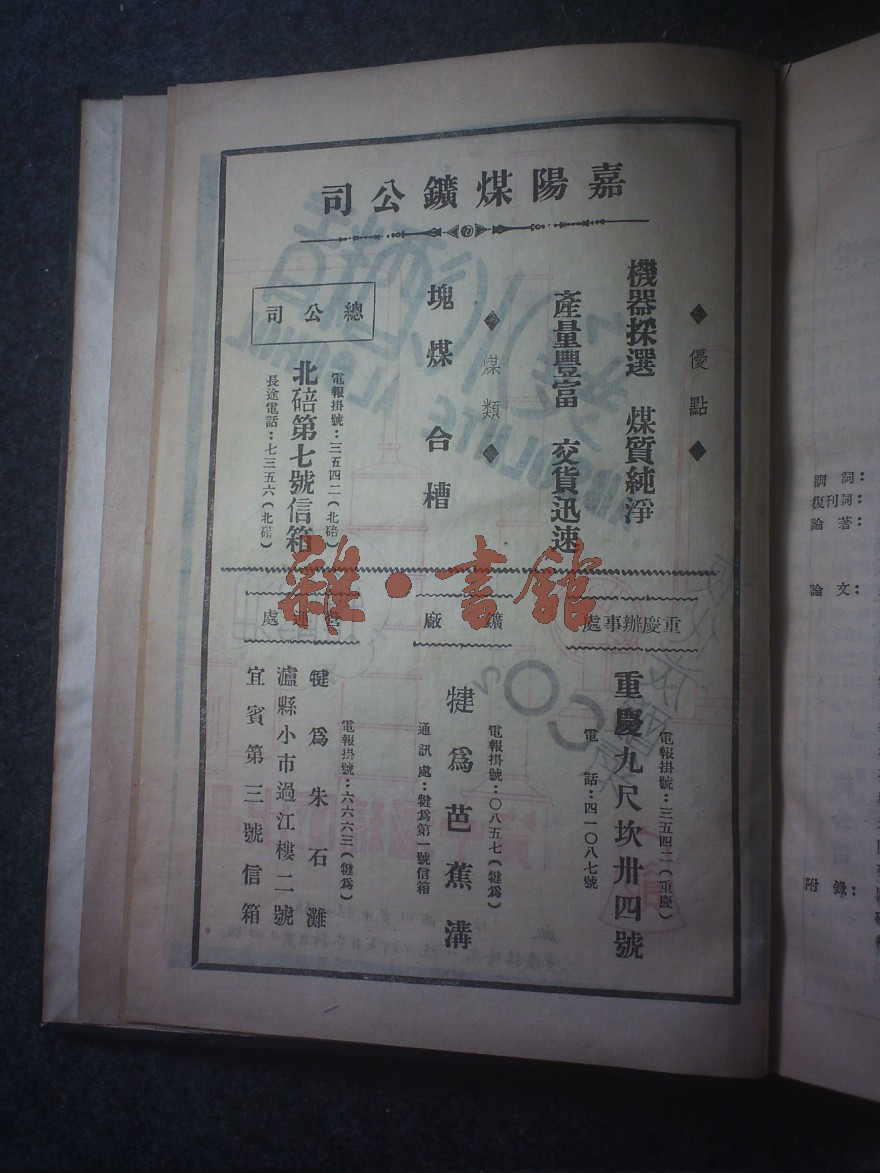 嘉陽煤鑛公司
◆優點◆
機器採選 煤質純淨
產量豐富 交貨迅速
◆煤類◆
塊煤合槽
總公司
電報掛號：三五四二（北碚）
北碚第七號信箱
長途電話：七三五六（北碚）
重慶辦事處
電報掛號：三五四二（重慶）
重慶九尺坎卅四號
電話：四一〇八七號
鑛廠
電報掛號：〇八五七（犍爲）
犍爲芭蕉溝
通訊處：犍爲第一號信箱
營運處
電報掛號：六六六三（犍爲）
犍爲朱石灘
瀘縣小市過江樓二號
宜賓第三號信箱
雜·書館
詞：
復刊詞：
論著：
論文：
附錄：
CO₂